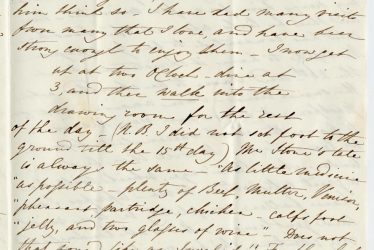 him think so - I have had many visits
from many that I love, and have been
strong enough to enjoy them - I now get
up at two O'Clock - dine at
3 and then walk into the
drawing room for the rest
of the day - (N.B I did not set foot to the
ground till the 15th day) Mr Stone's
is always the same - "As little medicine
"as possible - plenty of Beef, Mutton, Venison,
"pheasant partridge, chicken - calfs foot
"jelly, and two glasses of wine" - Does not
that sound like